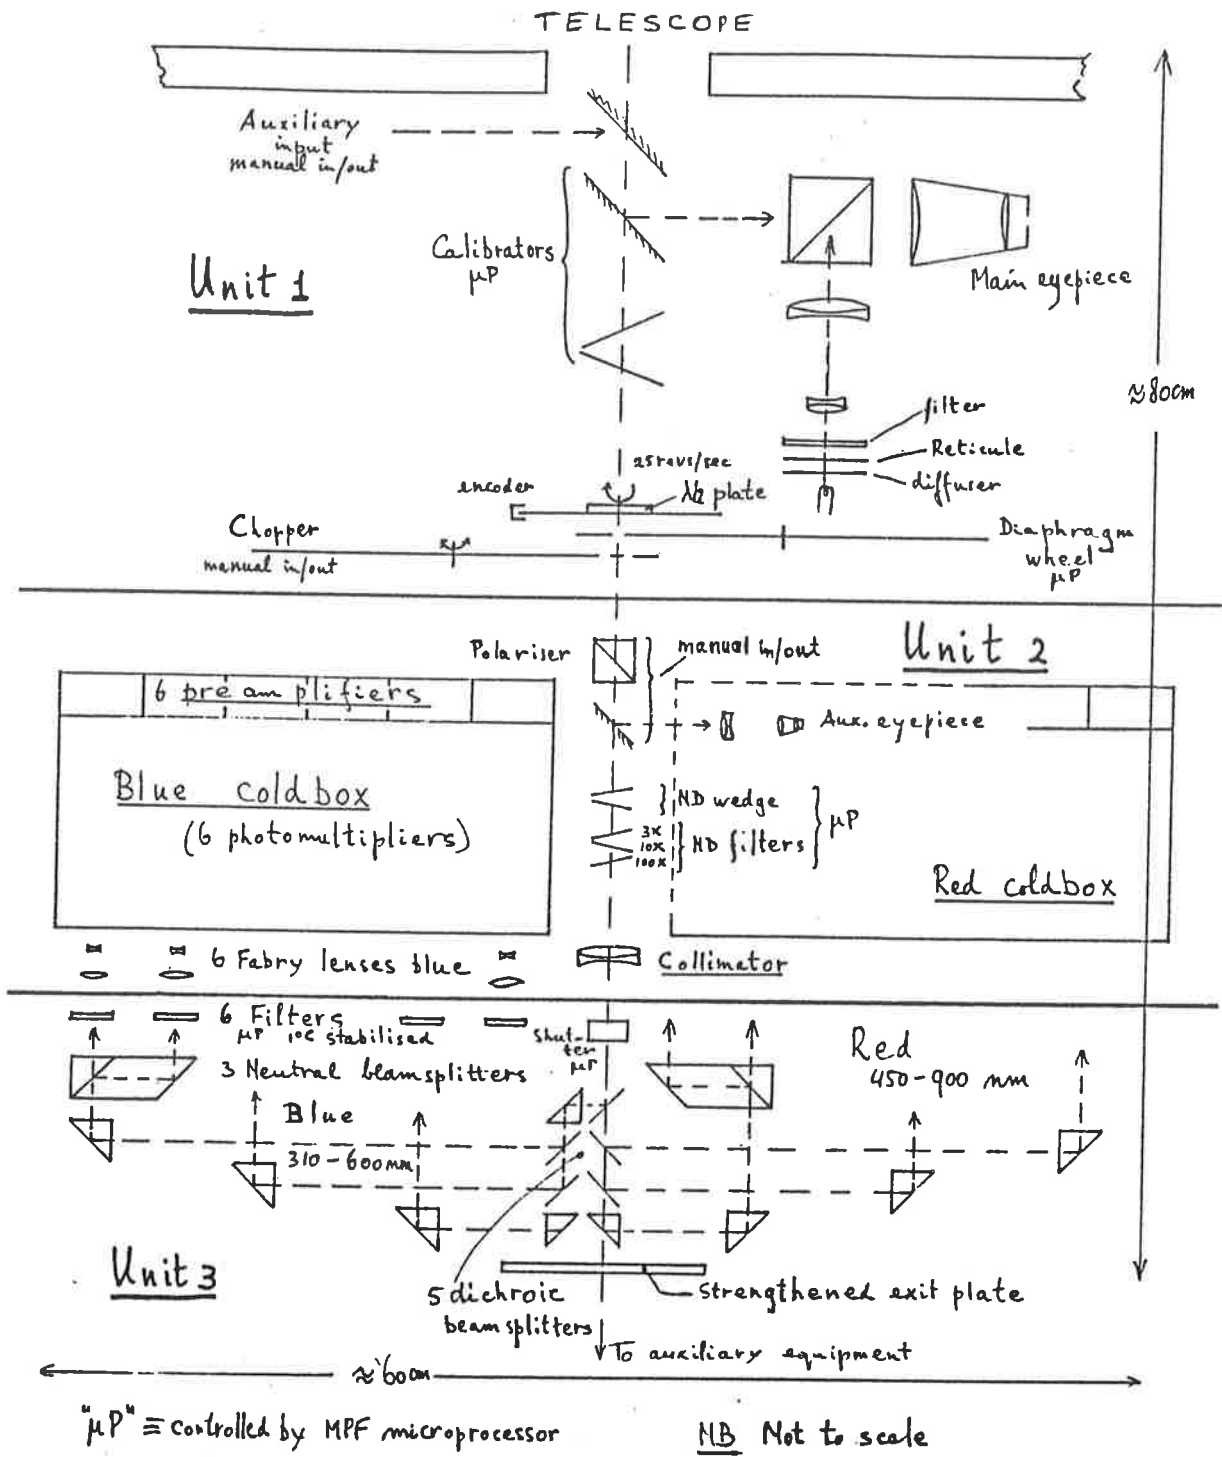 TELESCOPE
Auxiliary
input
manual in/out
Calibrators
μP
Unit 1
Main eyepiece
≈80cm
filter
Reticule
diffuser
25 revs/sec
encoder
λ/2 plate
Chopper
manual in/out
Diaphragm
wheel
μP
Polariser
manual in/out
Unit 2
6 preamplifiers
Aux. eyepiece
Blue coldbox
(6 photomultipliers)
ND wedge
3x
10x
100x
ND filters
μP
Red coldbox
6 Fabry lenses blue
Collimator
6 Filters
μP 10C stabilised
Shut-
ter
μP
Red
450-900 nm
3 Neutral beamsplitters
Blue
310-600nm
Unit 3
5 dichroic
beamsplitters
Strengthened exit plate
To auxiliary equipment
≈60cm
"μP" ≡ controlled by MPF microprocessor
NB Not to scale